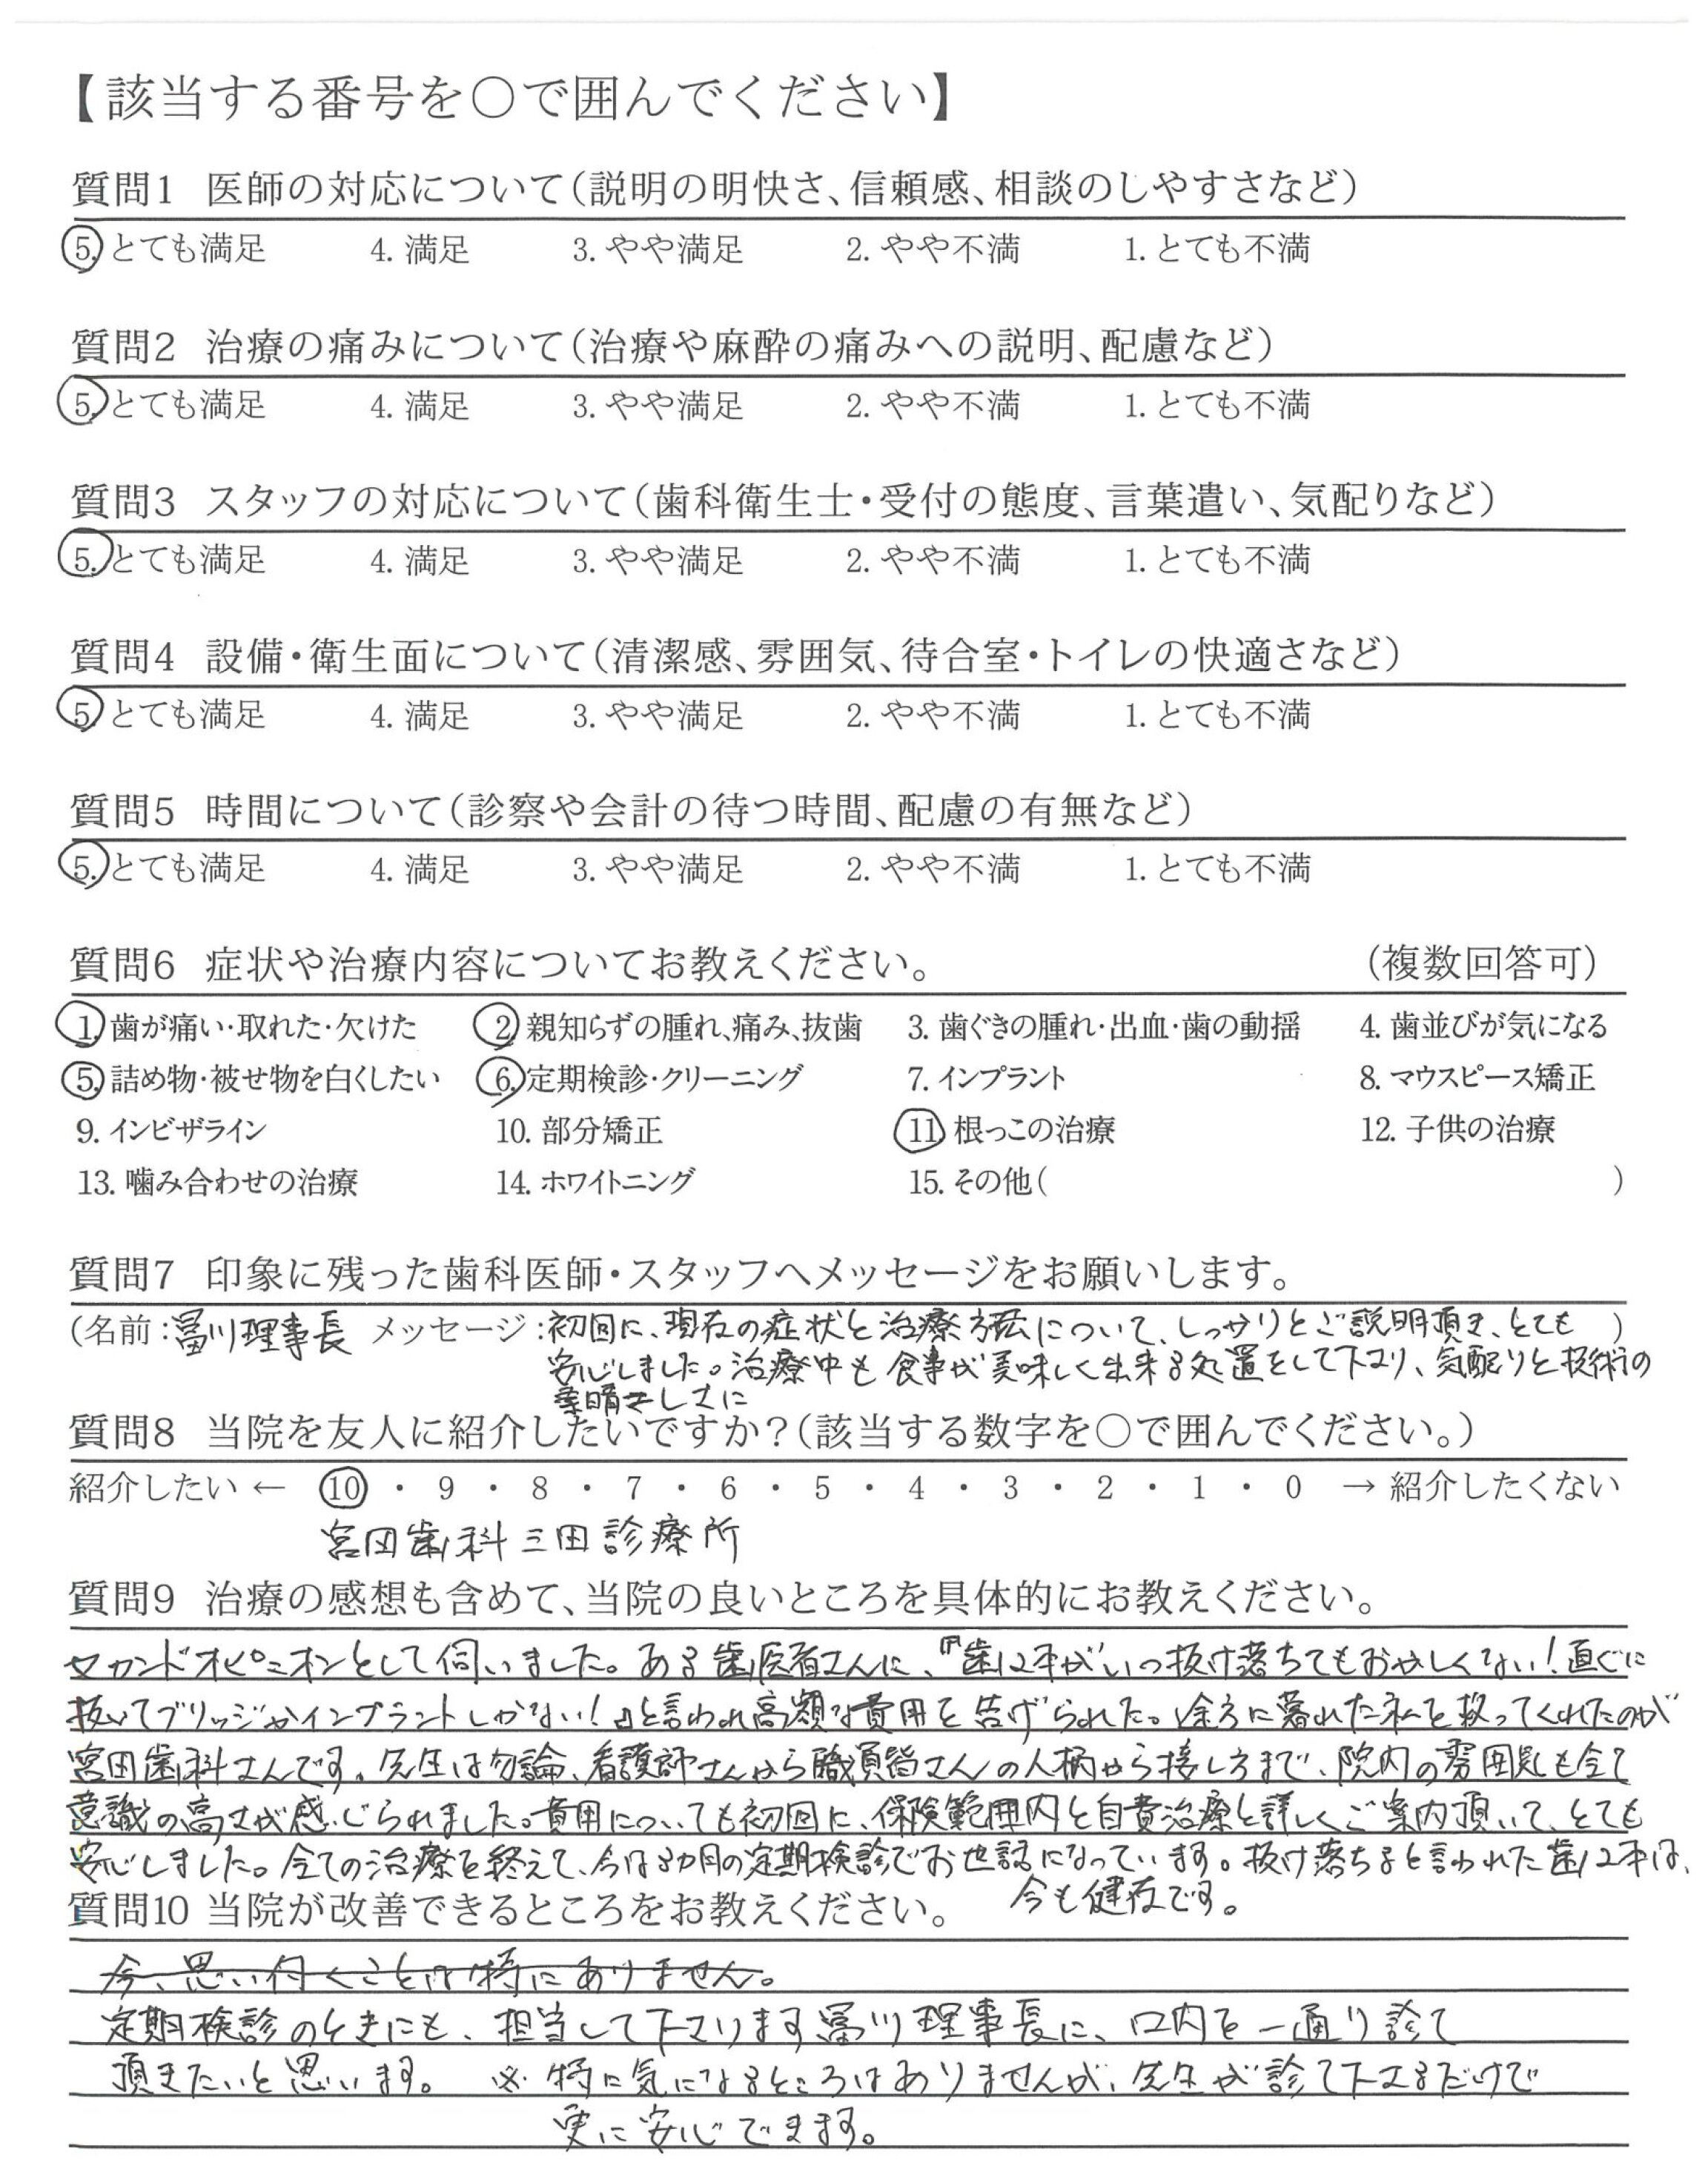 【該当する番号を〇で囲んでください】
質問1 医師の対応について(説明の明快さ、信頼感、相談のしやすさなど)
5. とても満足 4. 満足 3. やや満足 2. やや不満 1. とても不満
質問2 治療の痛みについて(治療や麻酔の痛みへの説明、配慮など)
5. とても満足 4. 満足 3. やや満足 2. やや不満 1. とても不満
質問3 スタッフの対応について(歯科衛生士・受付の態度、言葉遣い、気配りなど)
5. とても満足 4. 満足 3. やや満足 2. やや不満 1. とても不満
質問4 設備・衛生面について(清潔感、雰囲気、待合室・トイレの快適さなど)
5. とても満足 4. 満足 3. やや満足 2. やや不満 1. とても不満
質問5 時間について(診察や会計の待つ時間、配慮の有無など)
5. とても満足 4. 満足 3. やや満足 2. やや不満 1. とても不満
質問6 症状や治療内容についてお教えください。 (複数回答可)
1. 歯が痛い・取れた・欠けた 2. 親知らずの腫れ、痛み、抜歯 3. 歯ぐきの腫れ・出血・歯の動揺 4. 歯並びが気になる
5. 詰め物・被せ物を白くしたい 6. 定期検診・クリーニング 7. インプラント 8. マウスピース矯正
9. インビザライン 10. 部分矯正 11. 根っこの治療 12. 子供の治療
13. 噛み合わせの治療 14. ホワイトニング 15. その他( )
質問7 印象に残った歯科医師・スタッフへメッセージをお願いします。
(名前:冨川理事長 メッセージ:初回に、現在の症状と治療方法について、しっかりとご説明頂き、とても )
安心しました。治療中も食事が美味しく出来る処置をして下さり、気配りと技術の
素晴さしさに
質問8 当院を友人に紹介したいですか?(該当する数字を〇で囲んでください。)
紹介したい ← 10 ・ 9 ・ 8 ・ 7 ・ 6 ・ 5 ・ 4 ・ 3 ・ 2 ・ 1 ・ 0 → 紹介したくない
宮田歯科三田診療所
質問9 治療の感想も含めて、当院の良いところを具体的にお教えください。
セカンドオピニオンとして伺いました。ある歯医者さんに、『歯12本がいつ抜け落ちてもおかしくない!直ぐに
抜いてブリッジかインプラントしかない!』と言われ高額な費用を告げられた。途方に暮れた私を救ってくれたのが
宮田歯科さんです。先生は勿論、看護師さんから職員皆さんの人柄から接し方まで、院内の雰囲気も全て
意識の高さが感じられました。費用についても初回に、保険範囲内と自費治療と詳しくご案内頂いて、とても
安心しました。全ての治療を終えて、今は3カ月の定期検診でお世話になっています。抜け落ちると言われた歯12本は、
今も健在です。
質問10 当院が改善できるところをお教えください。
今、思い付くことは特にありません。
定期検診のときにも、担当して下さります冨川理事長に、口内を一通り診て
頂きたいと思います。 ※特に気になるところはありませんが、先生が診て下さるだけで
実に安心できます。